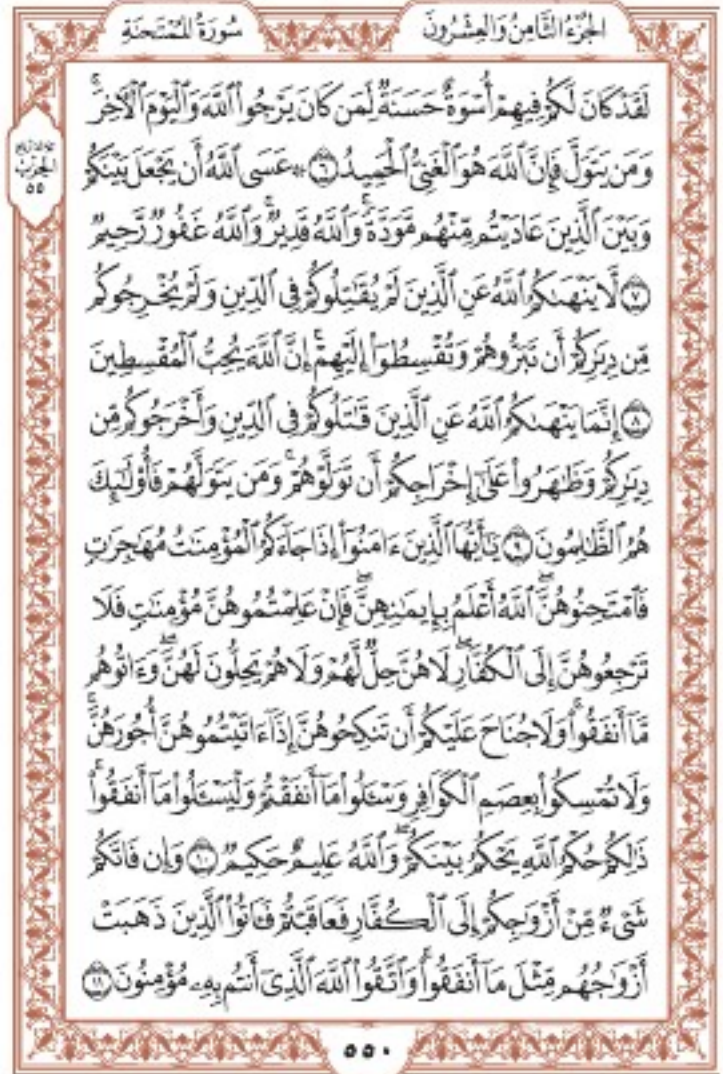 الجُزْءُ الثَّامِنُ وَالعِشْرُونَ
سُورَةُ المُمْتَحنَةِ
لَقَدْ كَانَ لَكُمْ فِيهِمْ أُسْوَةٌ حَسَنَةٌ لِّمَن كَانَ يَرْجُواْ ٱللَّهَ وَٱلْيَوْمَ ٱلْأٓخِرَۚ
وَمَن يَتَوَلَّ فَإِنَّ ٱللَّهَ هُوَ ٱلْغَنِيُّ ٱلْحَمِيدُ ٦ ۞ عَسَى ٱللَّهُ أَن يَجْعَلَ بَيْنَكُمْ
وَبَيْنَ ٱلَّذِينَ عَادَيْتُم مِّنْهُم مَّوَدَّةًۚ وَٱللَّهُ قَدِيرٌۚ وَٱللَّهُ غَفُورٌ رَّحِيمٌ
٧ لَّا يَنْهَىٰكُمُ ٱللَّهُ عَنِ ٱلَّذِينَ لَمْ يُقَٰتِلُوكُمْ فِي ٱلدِّينِ وَلَمْ يُخْرِجُوكُم
مِّن دِيَٰرِكُمْ أَن تَبَرُّوهُمْ وَتُقْسِطُوٓاْ إِلَيْهِمْۚ إِنَّ ٱللَّهَ يُحِبُّ ٱلْمُقْسِطِينَ
٨ إِنَّمَا يَنْهَىٰكُمُ ٱللَّهُ عَنِ ٱلَّذِينَ قَٰتَلُوكُمْ فِي ٱلدِّينِ وَأَخْرَجُوكُم مِّن
دِيَٰرِكُمْ وَظَٰهَرُواْ عَلَىٰٓ إِخْرَاجِكُمْ أَن تَوَلَّوْهُمْۚ وَمَن يَتَوَلَّهُمْ فَأُوْلَٰٓئِكَ
هُمُ ٱلظَّٰلِمُونَ ٩ يَٰٓأَيُّهَا ٱلَّذِينَ ءَامَنُوٓاْ إِذَا جَآءَكُمُ ٱلْمُؤْمِنَٰتُ مُهَٰجِرَٰتٖ
فَٱمْتَحِنُوهُنَّۖ ٱللَّهُ أَعْلَمُ بِإِيمَٰنِهِنَّۖ فَإِنْ عَلِمْتُمُوهُنَّ مُؤْمِنَٰتٖ فَلَا
تَرْجِعُوهُنَّ إِلَى ٱلْكُفَّارِۖ لَا هُنَّ حِلٌّ لَّهُمْ وَلَا هُمْ يَحِلُّونَ لَهُنَّۖ وَءَاتُوهُم
مَّآ أَنفَقُواْۚ وَلَا جُنَاحَ عَلَيْكُمْ أَن تَنكِحُوهُنَّ إِذَآ ءَاتَيْتُمُوهُنَّ أُجُورَهُنَّۚ
وَلَا تُمْسِكُواْ بِعِصَمِ ٱلْكَوَافِرِ وَسْـَٔلُواْ مَآ أَنفَقْتُمْ وَلْيَسْـَٔلُواْ مَآ أَنفَقُواْۚ
ذَٰلِكُمْ حُكْمُ ٱللَّهِ يَحْكُمُ بَيْنَكُمْۖ وَٱللَّهُ عَلِيمٌ حَكِيمٌ ١٠ وَإِن فَاتَكُمْ
شَيْءٌ مِّنْ أَزْوَٰجِكُمْ إِلَى ٱلْكُفَّارِ فَعَاقَبْتُمْ فَـَٔاتُواْ ٱلَّذِينَ ذَهَبَتْ
أَزْوَٰجُهُم مِّثْلَ مَآ أَنفَقُواْۚ وَٱتَّقُواْ ٱللَّهَ ٱلَّذِيٓ أَنتُم بِهِۦ مُؤْمِنُونَ ١١
الحِزْبُ
٥٥
٥٥٠